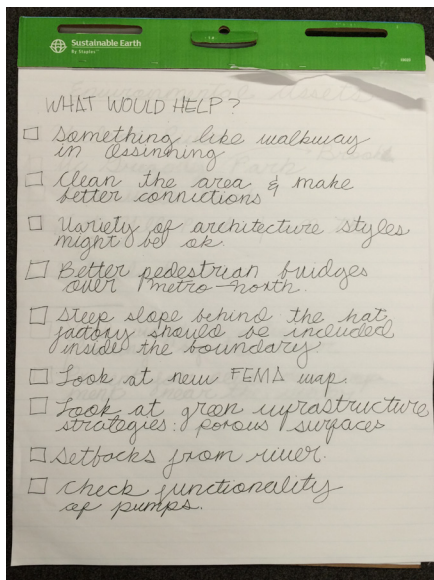 Sustainable Earth
By Staples™
WHAT WOULD HELP?
Something like walkway
in Ossinning
Clean the area & make
better connictions
Variety of architecture styles
might be ok.
Better pedestrian bridges
over Metro-north.
Steep slope behind the hat
factory should be included
inside the boundary.
Look at new FEMA map.
Look at green infrastructure
strategies: porous surfaces
Setbacks from river.
Check functionality
of pumps.